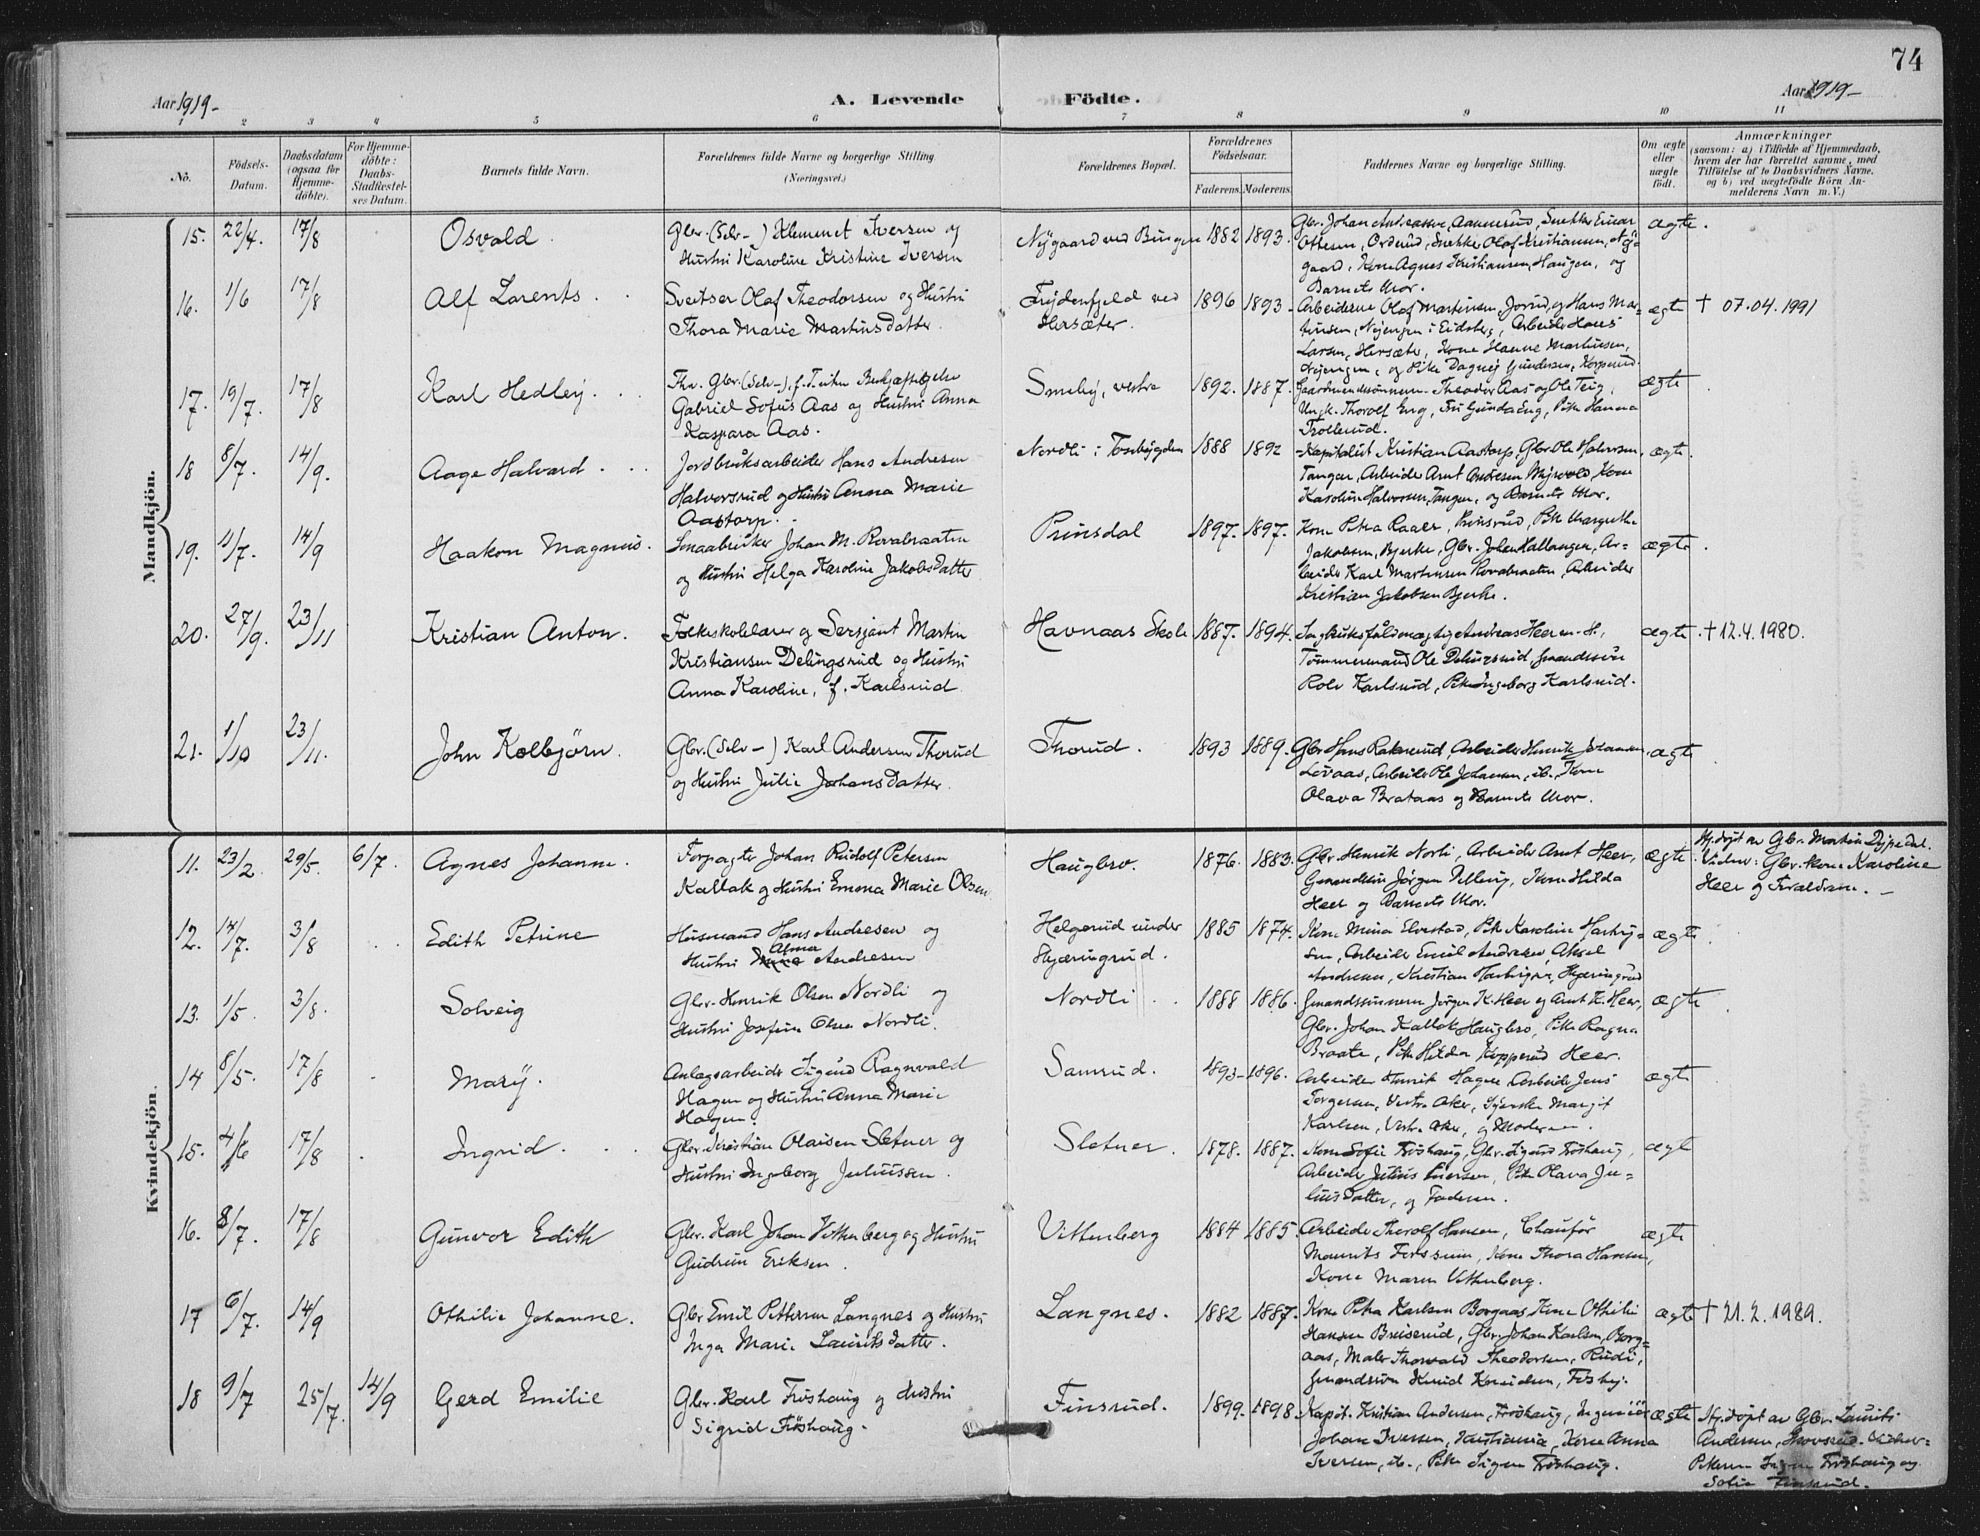 74
Aar 1919-
A. Levende Födte.
Aar 1919-
1 2 3 4 5 6 7 8 9 10 11
No.
Födsels-
Datum.
Daabsdatum
(ogsaa for
Hjemme-
döbte).
For Hjemme-
döbte:
Daabs-
Stadfæstel-
ses Datum.
Barnets fulde Navn.
Forældrenes fulde Navne og borgerlige Stilling
(Næringsvei.)
Forældrenes Bopæl.
Forældrenes
Födselsaar.
Faderens. Moderens.
Faddernes Navne og borgerlige Stilling.
Om ægte
eller
uægte
födt.
Anmærkninger
(saasom: a) i Tilfælde af Hjemmedaab,
hvem der har forrettet samme, med
Tilföielse af to Daabsvidners Navne.
og b) ved uægtefödte Börn An-
melderens Navn m. V.)
Mandkjön.
15. 22/4. 17/8 Osvald.
Gbr. (Selv-) Klemmet Iversen og
Hustru Karoline Kristine Iversen
Nygaard ved Bingen 1882 1893.
Gbr. Johan Andreassen, Aamerud, Snekker Einar
Ottesen, Orderud, Snekker Olaf Kristiansen, Ny-
gaard, Kone Agnes Kristiansen, Haugen, og
Barnets Mor.
ægte.
16. 1/6 17/8 Alf Lorents.
Sveitser Olaf Theodorsen og Hustru
Thora Marie Martinsdatter.
Frydenfjeld ved
Hersæter.
1896 1893
Arbeiderne Olaf Martinsen, Jorud, og Hans Mar-
tinsen, Nyengen i Eidsberg, Arbeider Hans
Larsen, Hersæter, Kone Hanne Martinsen,
Nyengen, og Pike Dagny Gundersen, Korperud
ægte
† 07.04.1991
17. 19/7. 17/8 Karl Hedley.
Gabriel Sofus Aas og Hustru Anna
Kaspara Aas.
Smeby, vestre 1892. 1887.
Gaardmandssönnerne Theodor Aas og Ole Teig,
Ungk. Thorolf Eng, Fru Gunda Eng, Pike Hanna
Trollerud.
ægte
18 8/7. 14/9. Aage Halvard.
Jordbruksarbeider Hans Andresen
Halvorsrud og Hustru Anna Marie
Aastorp.
Nordli i Tosebygden 1888 1892
Kapitalist Kristian Aastorp, Gbr. Ole Halvorsen,
Tangen, Arbeider Arnt Andresen Myrvold, Kone
Karoline Halvorsen, Tangen, og Barnets Mor.
ægte.
19. 1/7. 14/9 Haakon Magnus.
Smaabruker Johan M. Rovabraaten
og Hustru Helga Karoline Jakobsdatter
Prinsdal 1897. 1897.
Kone Petra Raaer, Prinsrud, Pike Margrethe
Jakobsen, Bjerke, Gbr. Johan Hallangen, Ar-
beider Karl Martinsen Rovabraaten, Arbeider
Kristian Jakobsen Bjerke.
ægte.
20. 27/9. 23/11 Kristian Anton.
Folkeskolelærer og Sersjant Martin
Kristiansen Delingsrud og Hustru
Anna Karoline, f. Karlsrud
Havnaas Skole 1887. 1894.
Sagbruksfuldmægtig Andreas Heer
Tömmermand Ole Delingsrud, Gmandssön
Rolv Karlsrud, Pike Ingeborg Karlsrud.
ægte.
† 12.4.1980.
21. 1/10 23/11. John Kolbjörn.
Gbr. (Selv-) Karl Andersen Thorud
og Hustru Julie Johansdatter.
Thorud. 1893 1889.
Gbr. Hans Rakerud, Arbeider Henrik Johansen
Lövaas, Arbeider Ole Johansen, ib., Kone
Olava Brataas og Barnets Mor.
ægte
Kvindekjön.
11. 23/2 29/5. 6/7. Agnes Johanne.
Forpagter Johan Rudolf Petersen
Kallak og Hustru Emma Marie Olsen
Haugbro. 1876. 1883.
Gbr. Henrik Norli, Arbeider Arnt Heer,
Gmandssön Jörgen Killing, Kone Hilda
Heer og Barnets Mor.
ægte
Hj.döpt av Gbr. Martin Dypedal.
Vidner: Gbr. kone Karoline
Heer og Forældrene. -
12. 14/7. 3/8 Edith Petrine
Husmand Hans Andresen og
Alma
Hustru Andresen
Helgerud under
Hjæringrud.
1885 1874.
Kone Mina Elvestad, Pike Karoline
Arbeider Emil Andresen, Aksel
Andresen, Kristian Hjæringrud
ægte
13. 1/5. 3/8. Solveig
Gbr. Henrik Olsen Nordli og
Hustru Josefine Olsen Nordli.
Nordli 1888 1886.
Gmandssönnerne Jörgen K. Heer og Arnt K. Heer,
Gbr. Johan Kallak Haugbro, Pike Ragna
Braate, Pike Hilda Kopperud Heer.
ægte
14 8/5. 17/8 Mary.
Anlægsarbeider Sigurd Ragnvald
Hagen og Hustru Anna Marie
Hagen.
Samrud. 1893- 1896.
Arbeider Henrik Hagen, Arbeider Jens
Torgersen, Vestre Aker, Syerske Margit
Karlsen, Vestre Aker, og Moderen.
ægte
15. 4/6 17/8 Ingrid.
Gbr. Kristian Olaisen Sletner og
Hustru Ingeborg Juliussen.
Sletner. 1878. 1887.
Kone Sofie Fröshaug, Gbr. Sigurd Fröshaug,
Arbeider Julius Iversen, Pike Olava Ju-
liusdatter, og Faderen.
ægte
16. 8/7. 17/8 Gunvor Edith
Gbr. Karl Johan Vittenberg og Hustru
Gudrun Eriksen.
Vittenberg 1884 1885.
Arbeider Thorolf Hansen, Chauför
Maurits Fossum, Kone Thora Hansen,
Kone Maren Vittenberg.
ægte
17 6/7. 14/9 Othilie Johanne.
Gbr. Emil Pettersen Langnes og Hustru
Inga Marie Lauritsdatter.
Langnes. 1882 1887.
Kone Petra Karlsen Borgaas, Kone Othilie
Hansen Breiserud, Gbr. Johan Karlsen, Borg-
aas, Maler Thorvald Theodorsen, Rudi,
Gmandssön Knud Knudsen, Fosby.
ægte
† 21.2.1989.
18 9/7 25/7. 14/9 Gerd Emilie
Gbr. Karl Fröshaug og Hustru
Sigrid Fröshaug.
Finsrud. 1899. 1898
Kapt. Kristian Andersen, Fröshaug, Ingeniör
Johan Iversen, Kristiania, Kone Anna
Iversen, ib., Pike Signe Fröshaug.
ægte
Hj.döpt av Gbr. Laurits
Andersen, Skovsrud. Vidner:
Pikerne Signe Fröshaug og
Sofie Finsrud.